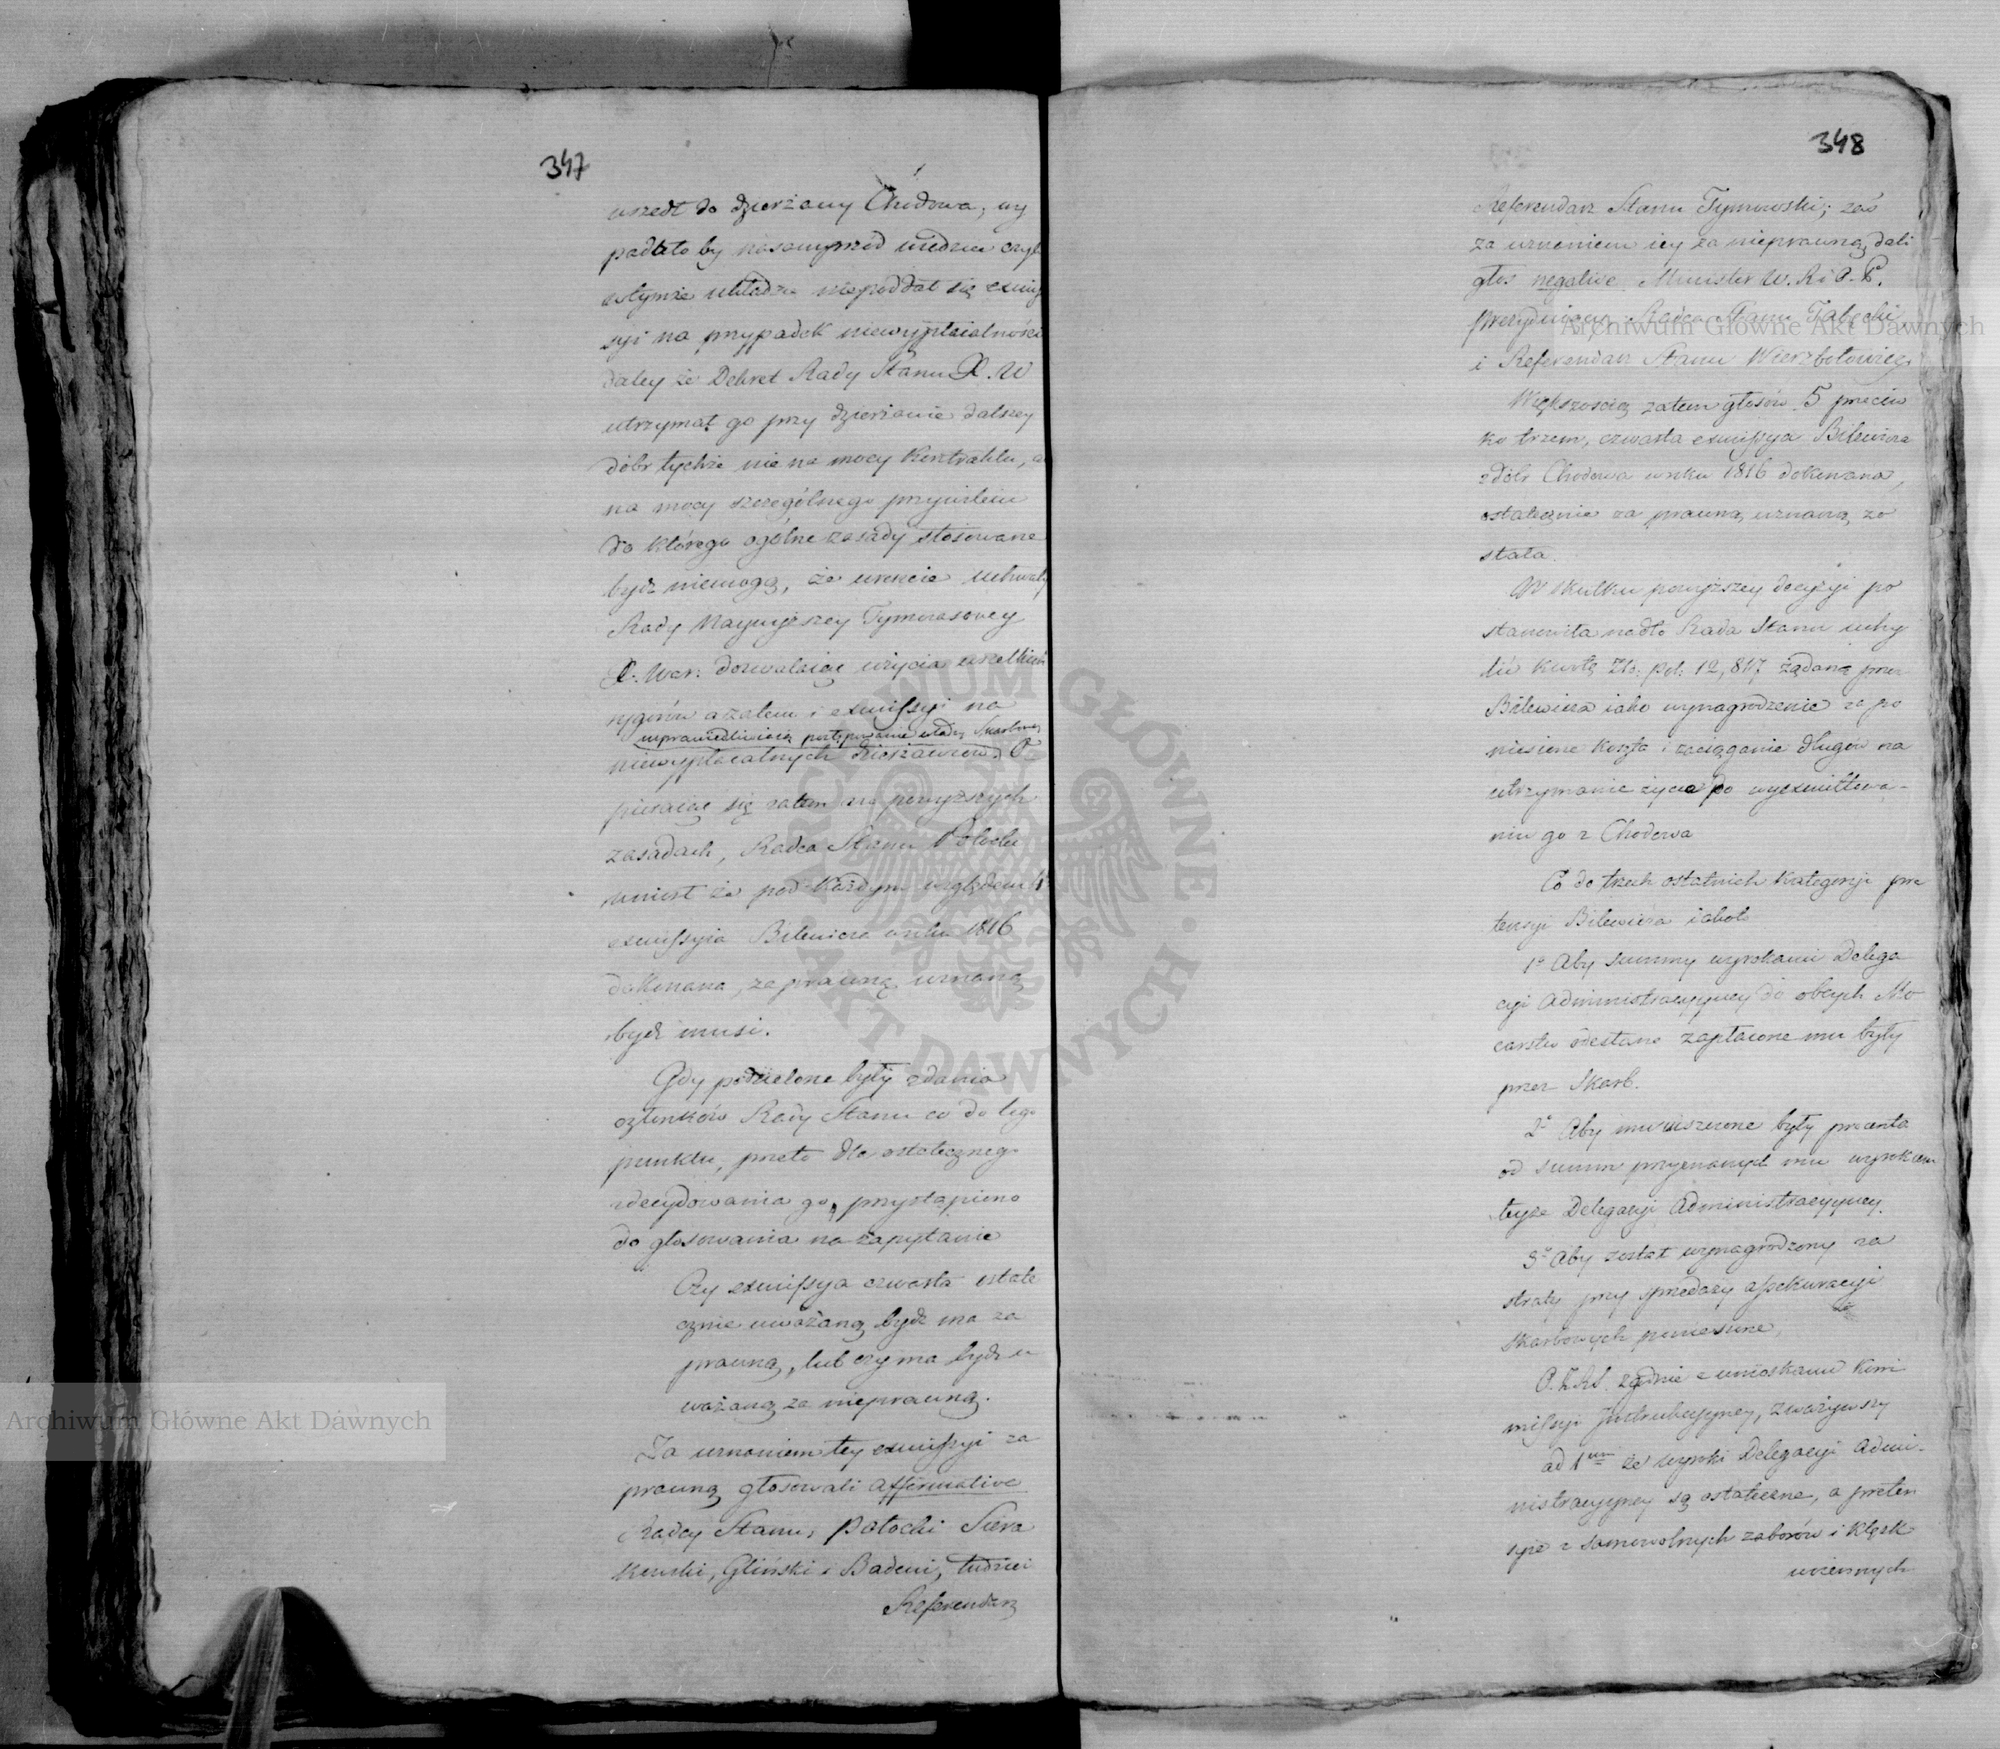 347
wszedł do dzierżawy Chodowa, wy
padałoby nasamprzód wiedzieć czyli
w tymże układzie niepoddał się exmis
syi na przypadek niewypłacalności
daley że Dekret Rady Stanu X. W
utrzymał go przy dzierżawie dalszey
dóbr tychże nie na mocy Kontraktu, a
na mocy szczególnego przywileiu
do którego ogólne zasady stosowane
bydź niemogą, że wreście uchwały
Rady Naywyższey Tymczasowey
X. War: dozwalaiąc użycia wszelkich
rygorów a zatem i exmissyi na
usprawiedliwiaią postępowanie władzy Skarbowey
niewypłacalnych dzierżawców. O
pieraiąc się zatem na powyższych
zasadach, Radca Stanu Potocki
wniósł że pod każdym względem
exmissyia Bilewicza w roku 1816
dokonana, za prawną uznaną
bydź musi.
Gdy podzielone były zdania
członków Rady Stanu co do tego
punktu, przeto dla ostatecznego
zdecydowania go, przystąpiono
do głosowania na zapytanie
Czy exmissya czwarta ostate
cznie uważaną bydź ma za
prawną, lub czy ma bydź u
ważaną za nieprawną.
Za uznaniem tey exmissyi za
prawną głosowali affirmative
Radcy Stanu, Potocki Siera
kowski, Gliński i Badeni, tudzież
Referendarz
348
Referendarz Stanu Tymowski; zaś
za uznaniem iey za nieprawną, dali
głos negative Minister W. R. i O. P.
Prezyduiący Radca Stanu Tabęcki,
i Referendarz Stanu Wierzbołowicz
Większością zatem głosów 5 przeciw
ko trzem, czwarta exmissya Bilewicza
z dóbr Chodowa w roku 1816 dokonana,
ostatecznie za prawną uznaną zo
stała.
W skutku powyższey decyzyi po
stanowiła nadto Rada Stanu uchy
lić kwotę Złt: pol: 12,817 żądaną przez
Bilewicza iako wynagrodzenie za po
niesione koszta i zaciąganie długów na
utrzymanie życia po wyexmittowa-
niu go z Chodowa
Co do trzech ostatnich kategoryi pre
tensyi Bilewicza iakoto
1o Aby summy wyrokami Delega
cyi Administracyyney do obcych Mo
carstw odesłane zapłacone mu były
przez Skarb.
2o Aby mu uiszczone były procenta
od summ przyznanych mu wyrokami
teyże Delegacyi Administracyyney.
3o Aby został wynagrodzony za
straty przy sprzedaży assekuracyi
skarbowych poniesione,
zgodnie z wnioskami Kom
missyi Instrukcyyney, zważywszy
ad 1um że wyroki Delegacyi Admi-
nistracyyney są ostateczne, a preten
sye z samowolnych zaborów i klęsk
woiennych
Archiwum Główne Akt Dawnych
Archiwum Główne Akt Dawnych
ARCHIWUM GŁÓWNE · AKT DAWNYCH ·